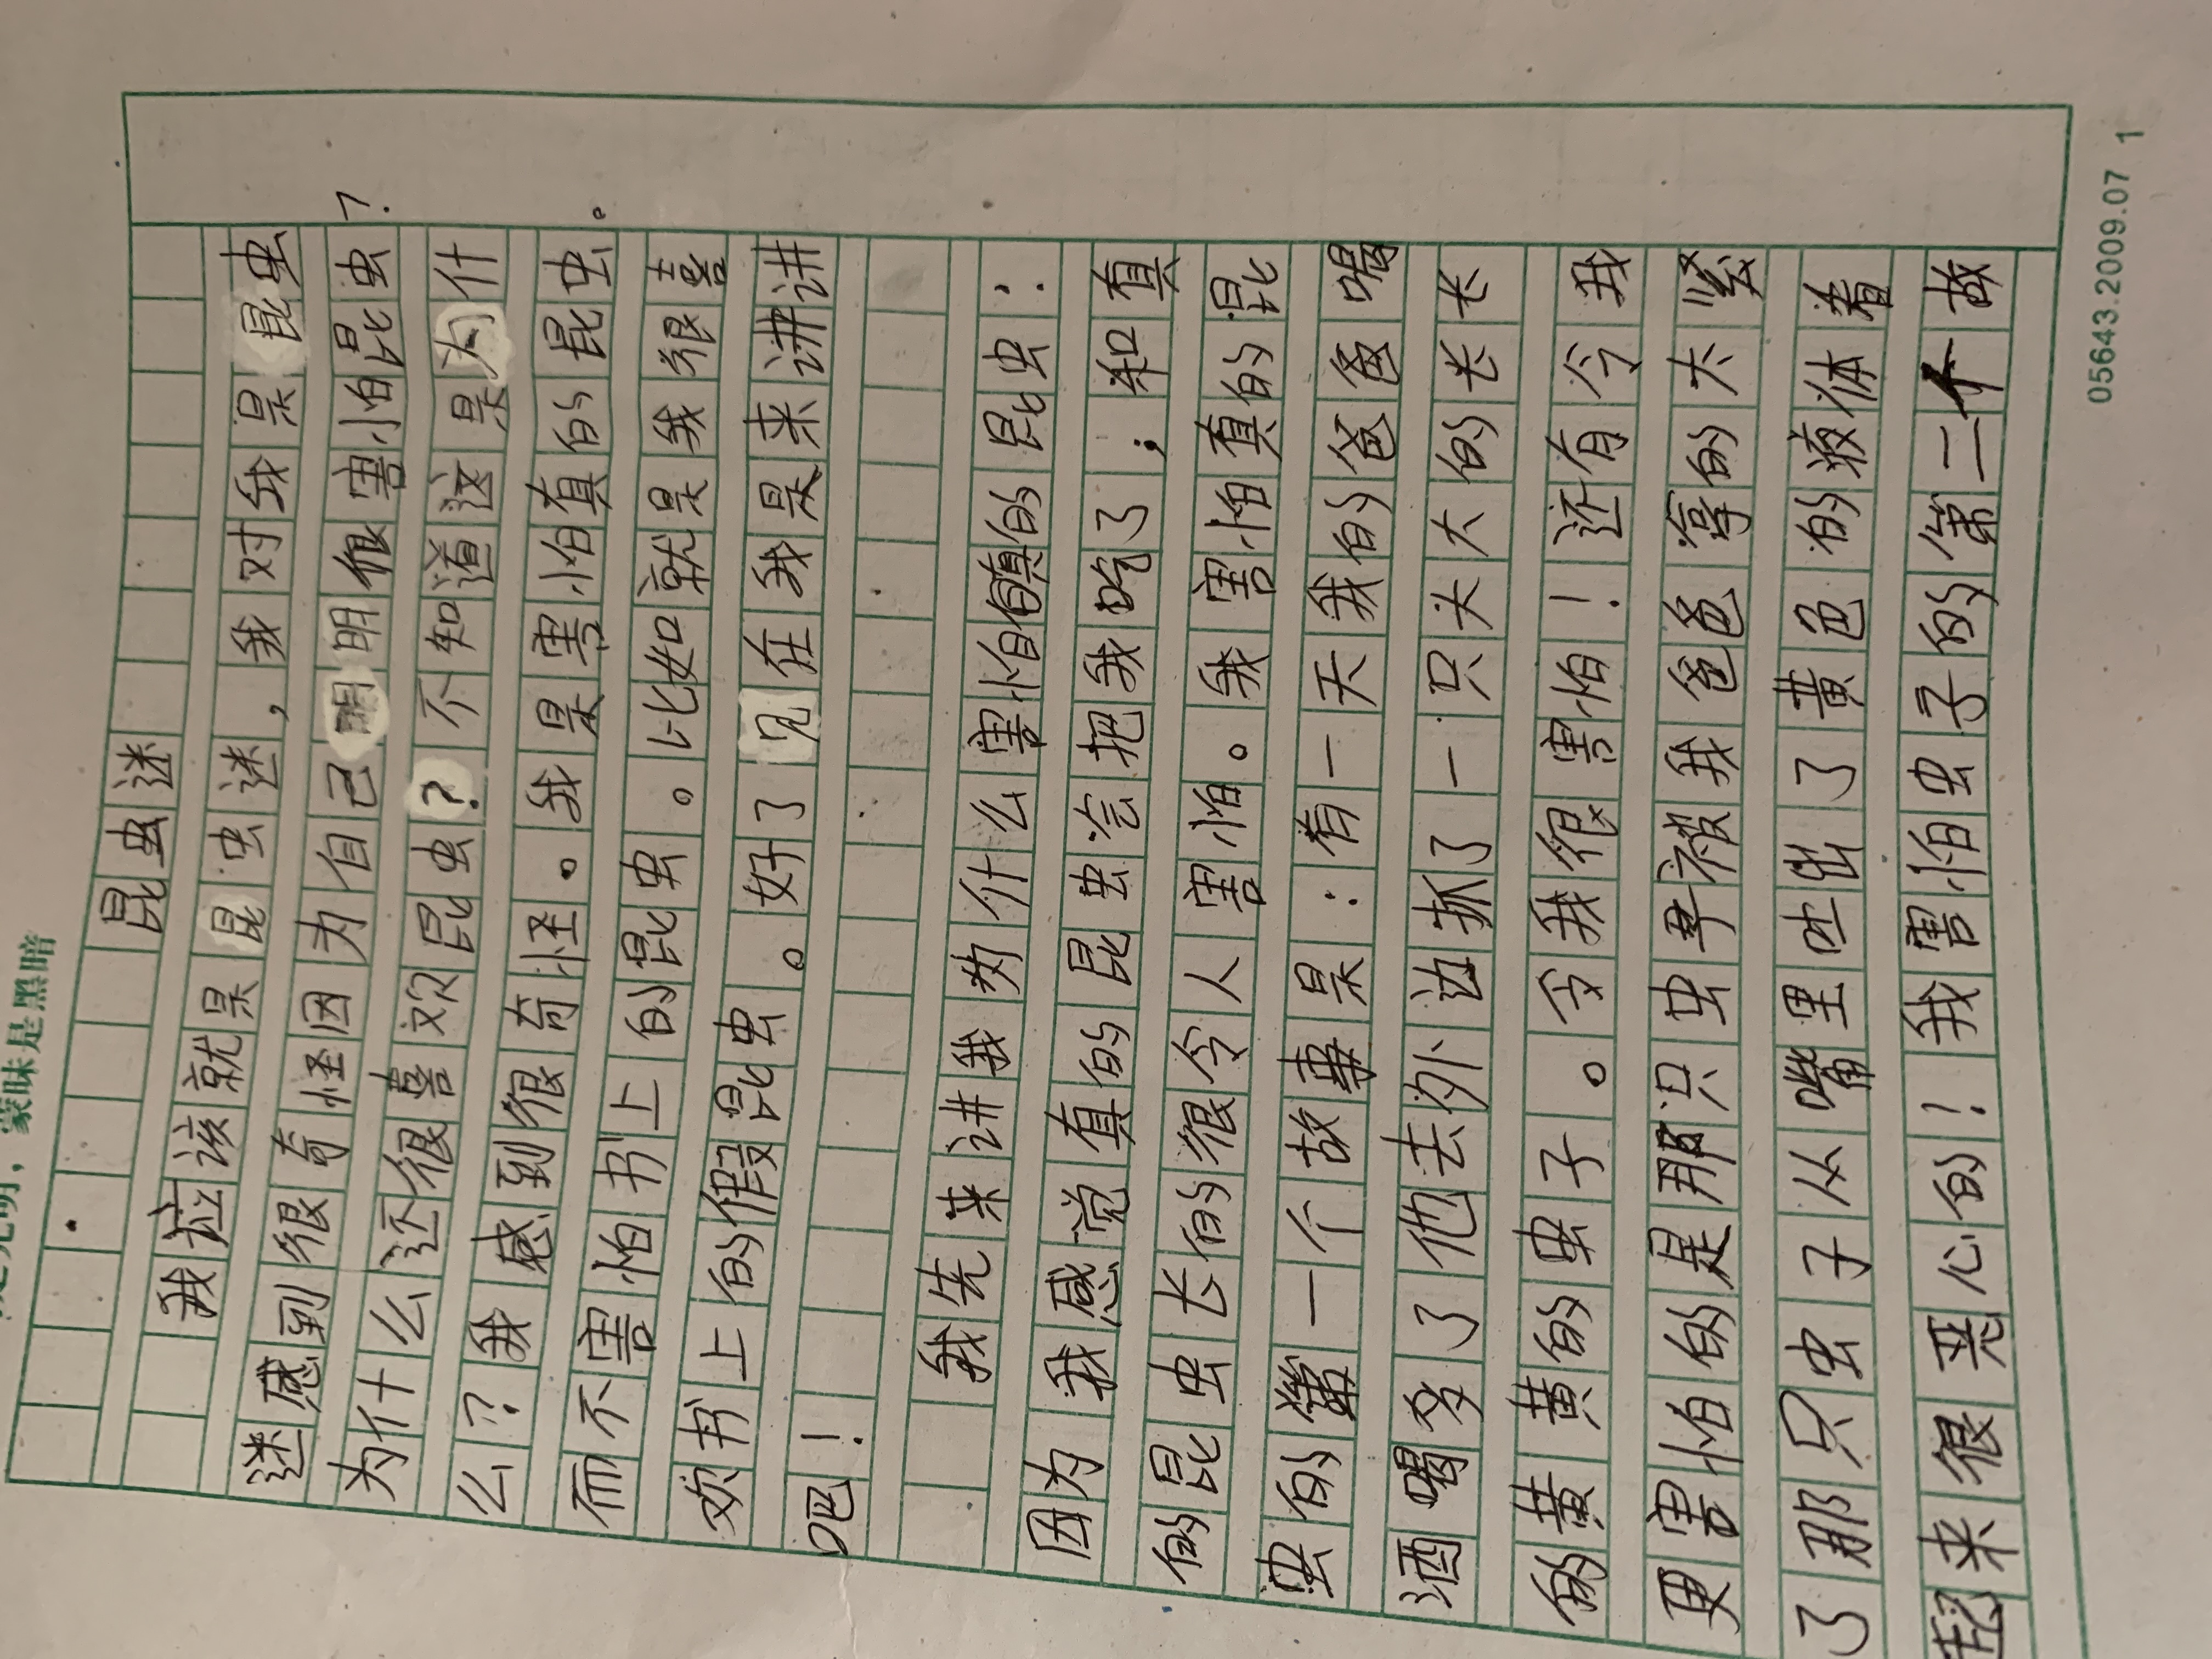 蒙昧是黑暗
昆虫谜
我应该就是昆虫谜，我对我是昆虫
谜感到很奇怪因为自己明明很害怕昆虫？
为什么还很喜欢昆虫？不知道这是为什
么？我感到很奇怪。我是害怕真的昆虫。
而不害怕书上的昆虫。比如就是我很喜
欢书上的假昆虫。好了见在我是来讲讲
吧！
我先来讲我为什么害怕真的昆虫：
因为我感觉真的昆虫会把我吃了；和真
的昆虫长的很令人害怕。我害怕真的昆
虫的第一个故事是：有一天我的爸爸喝
酒喝多了他去外边抓了一只大大的长长
的黄黄的虫子。令我很害怕！还有令我
更害怕的是那只虫子被我爸爸拿的太紧
了那只虫子从嘴里吐出了黄色的液体看
起来很恶心的！我害怕虫子的第二个故
05643.2009.07 1